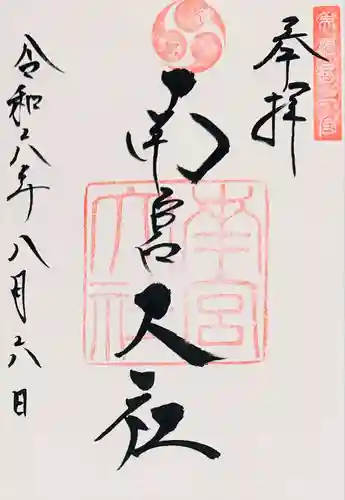 美濃國一宮
奉拝
南宮大社
南宮大社
令和八年八月六日